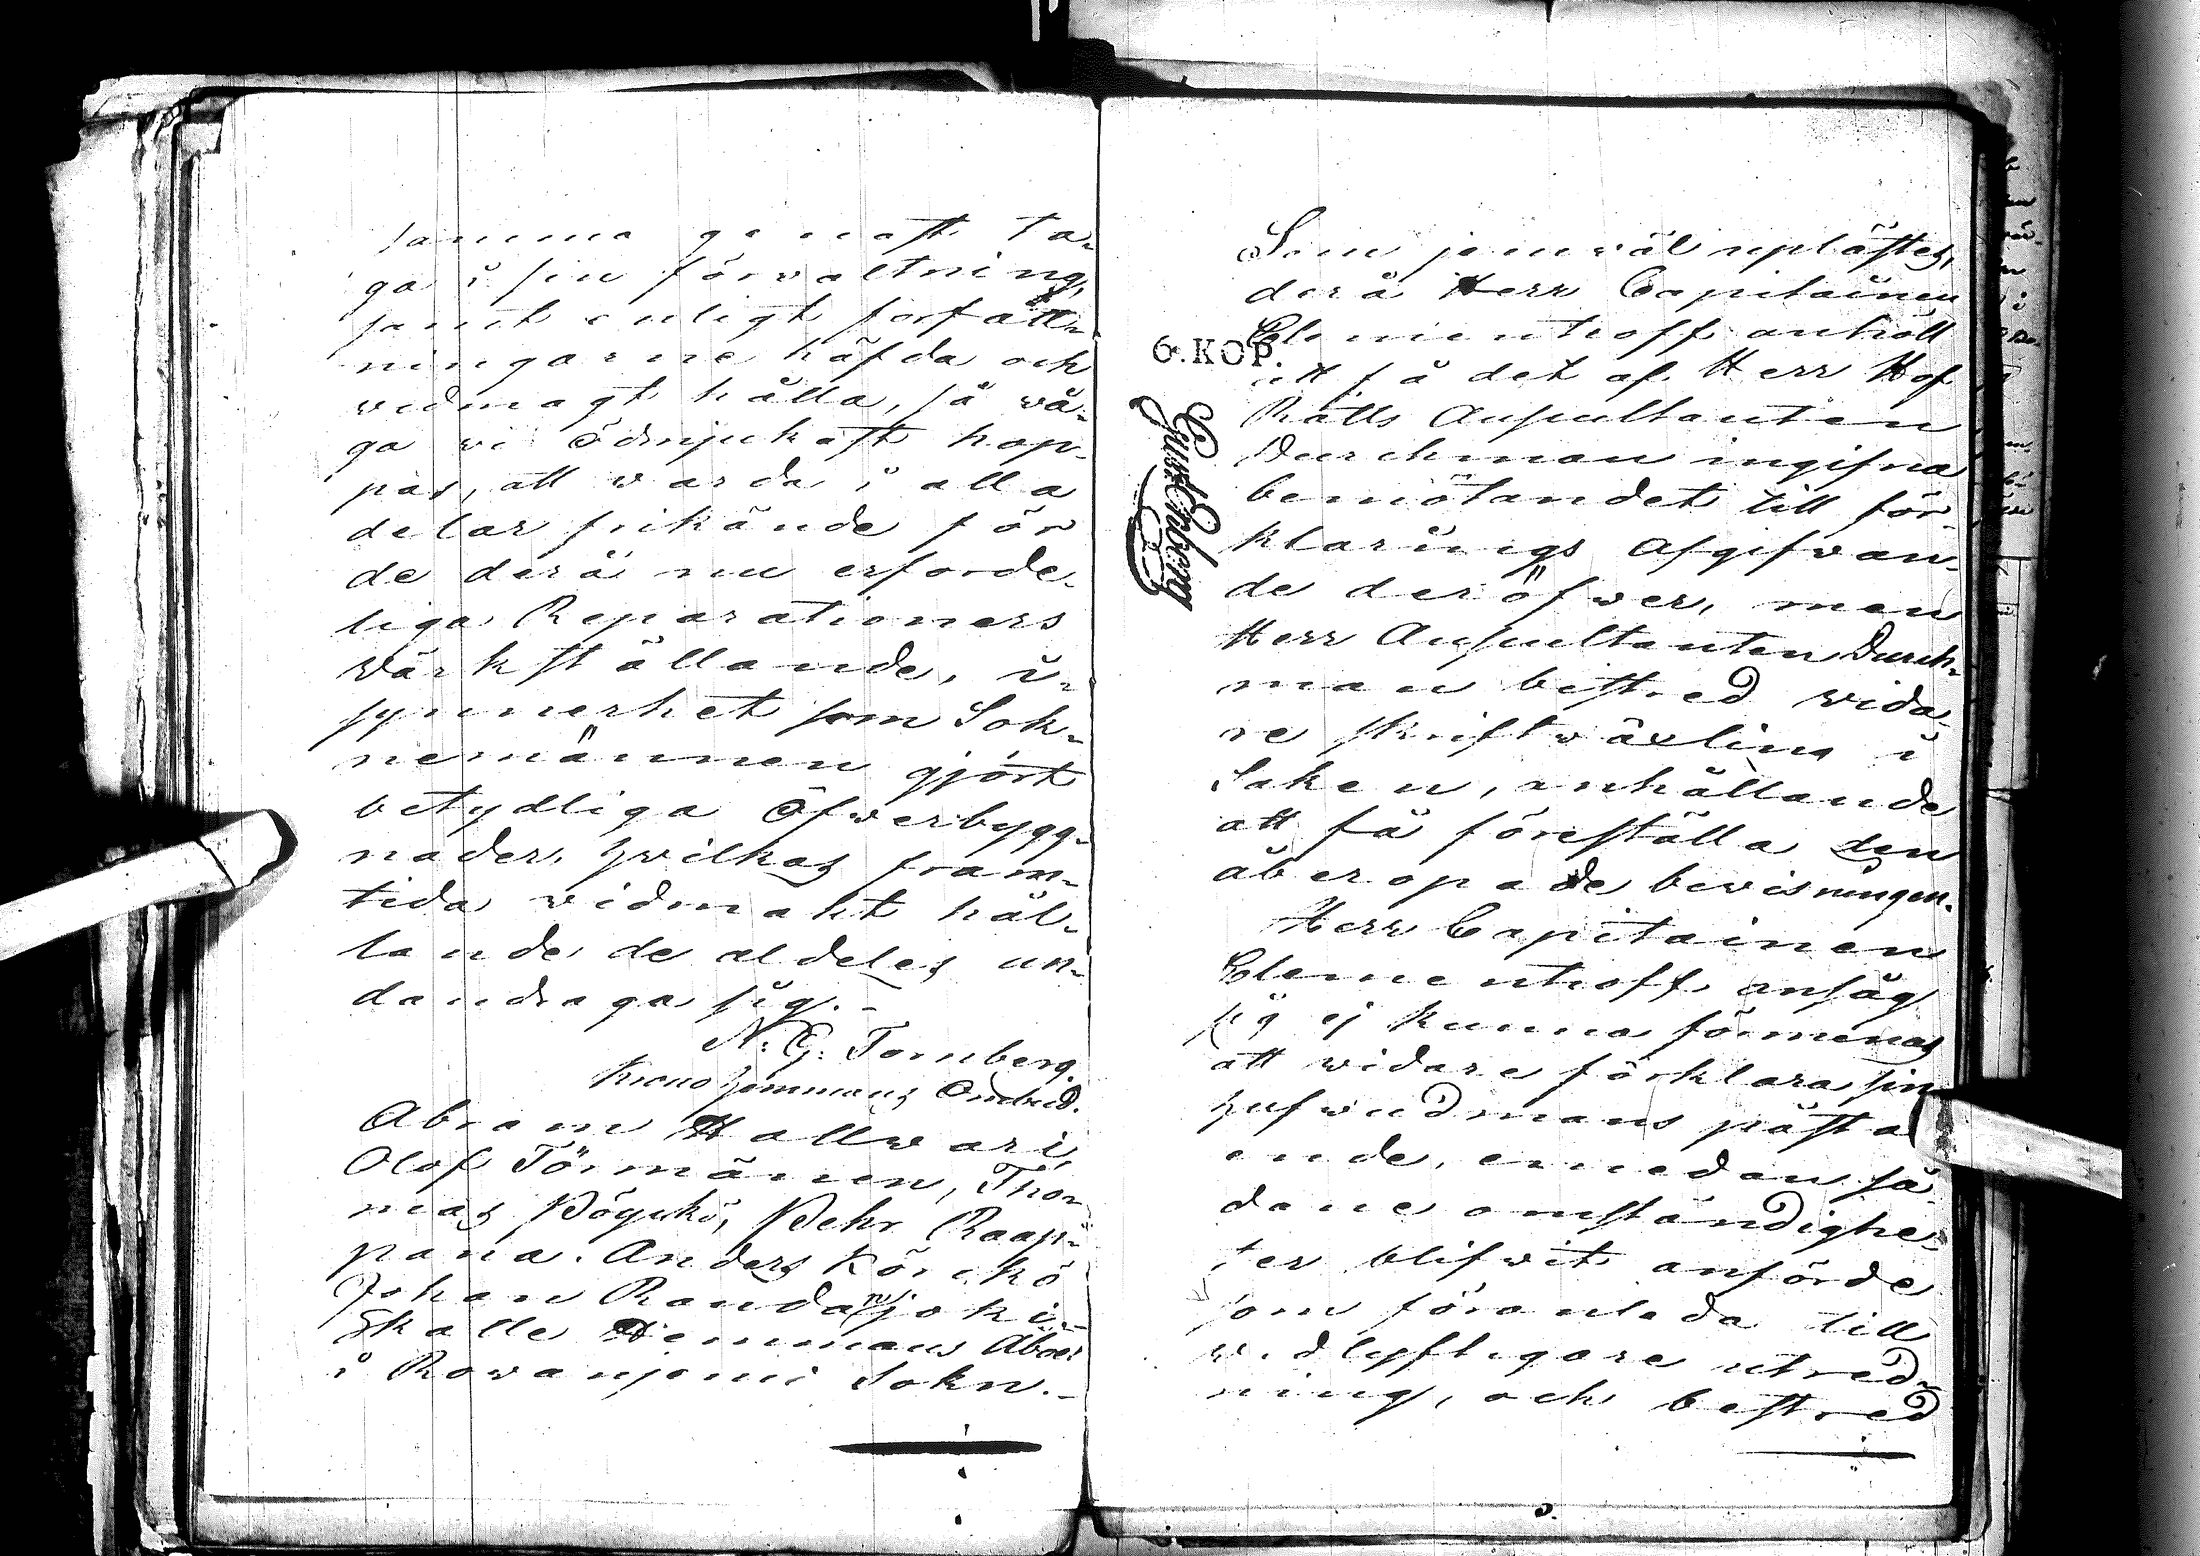 samma genast ta-
ga i sin förwaltning,
samt enligt författ-
ningarne häfda och
widmagt hålla, så wå-
ga wi ödmjukast hop-
pas, att warda i alla
delar frikände för
de derå nu erforde-
liga Reparationers
wärkställande, i-
synnerhet som Sok-
nemännen gjort
betydliga öfwerbygg-
nader, hwilkas fram-
tida widmakt hål-
lande de aldeles un-
dandraga sig.-
N. G. Tornberg.
Krono hemmans Ombud.
Abram Hallwari,
Olof Törmänen, Tho-
mas Pöykö, Pehr Raap-
pana. Anders Körckö
Johan Randawjoki-
Skatte Hemmans Åboer
i Rowanjemi Sokn.-
Som jemwäl uplästes,
derå Herr Capitainen
Clementeoff anhöll
att få det af Herr Hof
Rätts Auscultanten
Durchman ingifna
bemötandet till för-
klarings afgifwan-
de deröfwer, men
Herr Auscultanten Durch-
man bestred wida-
re skriftwäxling i
Saken, anhållande
att få föreställa den
åberopade bewisningen.
Herr Capitainen
Clementeoff ansåg
sig ej kunna förmenas
att widare förklara sin
hufwudmans påstå
ende, emedan så-
dane omständighe-
ter blifwit anförde
som föranleda till
widlyftigare utred-
ning, och bestred
6. KOP.